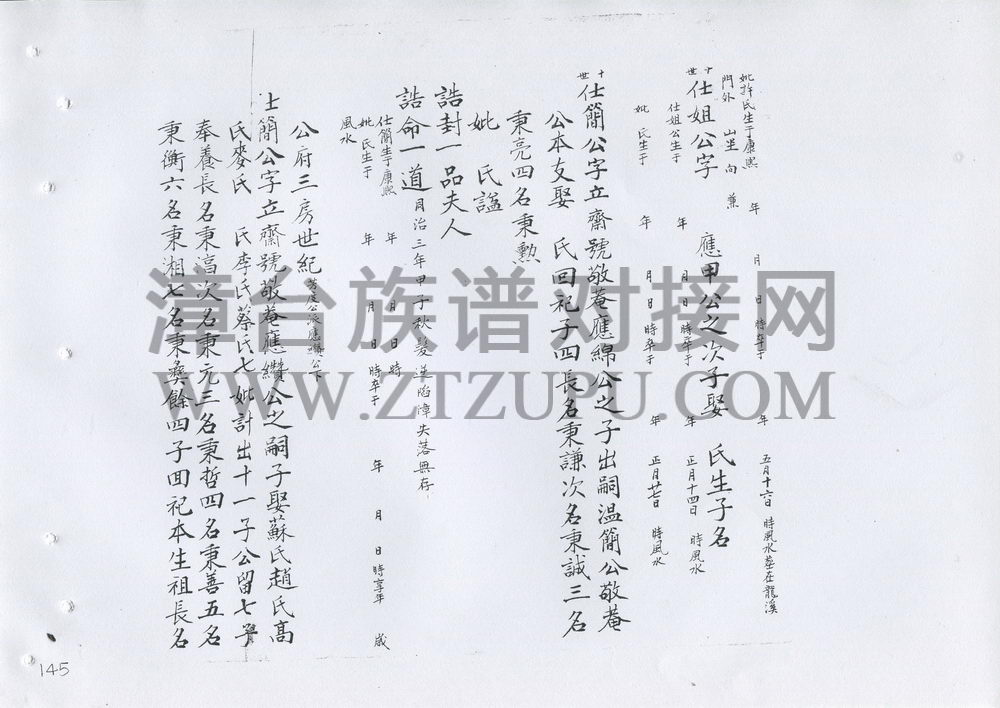 妣許氏生于康熙 年 月 日 時卒于 年 五月十六日 時風水墓在龍溪
門外 山坐 向 兼
十世 仕姐公字 應甲公之次子娶 氏生子名
仕姐公生于 年 月 日 時卒于 年 正月十四日 時風水
妣 氏生于 年 月 日 時卒于 年 正月廿七日 時風水
十世 仕簡公字立齋號敬菴應綿公之子出嗣温簡公敬菴
公本友娶 氏回祀子四長名秉謙次名秉誠三名
秉亮四名秉勲
妣 氏謚
誥封一品夫人
誥命一道 同治三年甲子秋髮逆陷漳失落無存
仕簡生于康熙 年 月 日 時
妣 氏生于 年 月 日 時卒于 年 月 日 時享年 歲
風水
公府三房世紀 芳度公派應纘公下
士簡公字立齋號敬菴應纘公之嗣子娶蘇氏趙氏高
氏麥氏 氏李氏蔡氏七妣計出十一子公留七房
奉養長名秉濤次名秉元三名秉哲四名秉善五名
秉衡六名秉湘七名秉彝餘四子回祀本生祖長名
145
漳台族谱对接网
WWW.ZTZUPU.COM